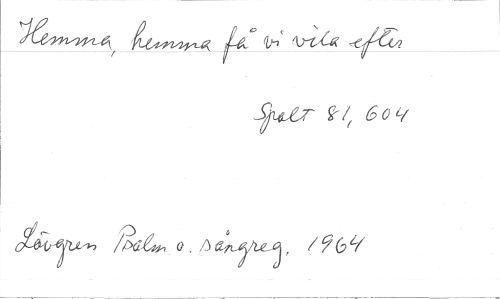 Hemma, hemma få vi vila efter
Spalt 81, 604
Lövgren Psalm o. sångreg. 1964